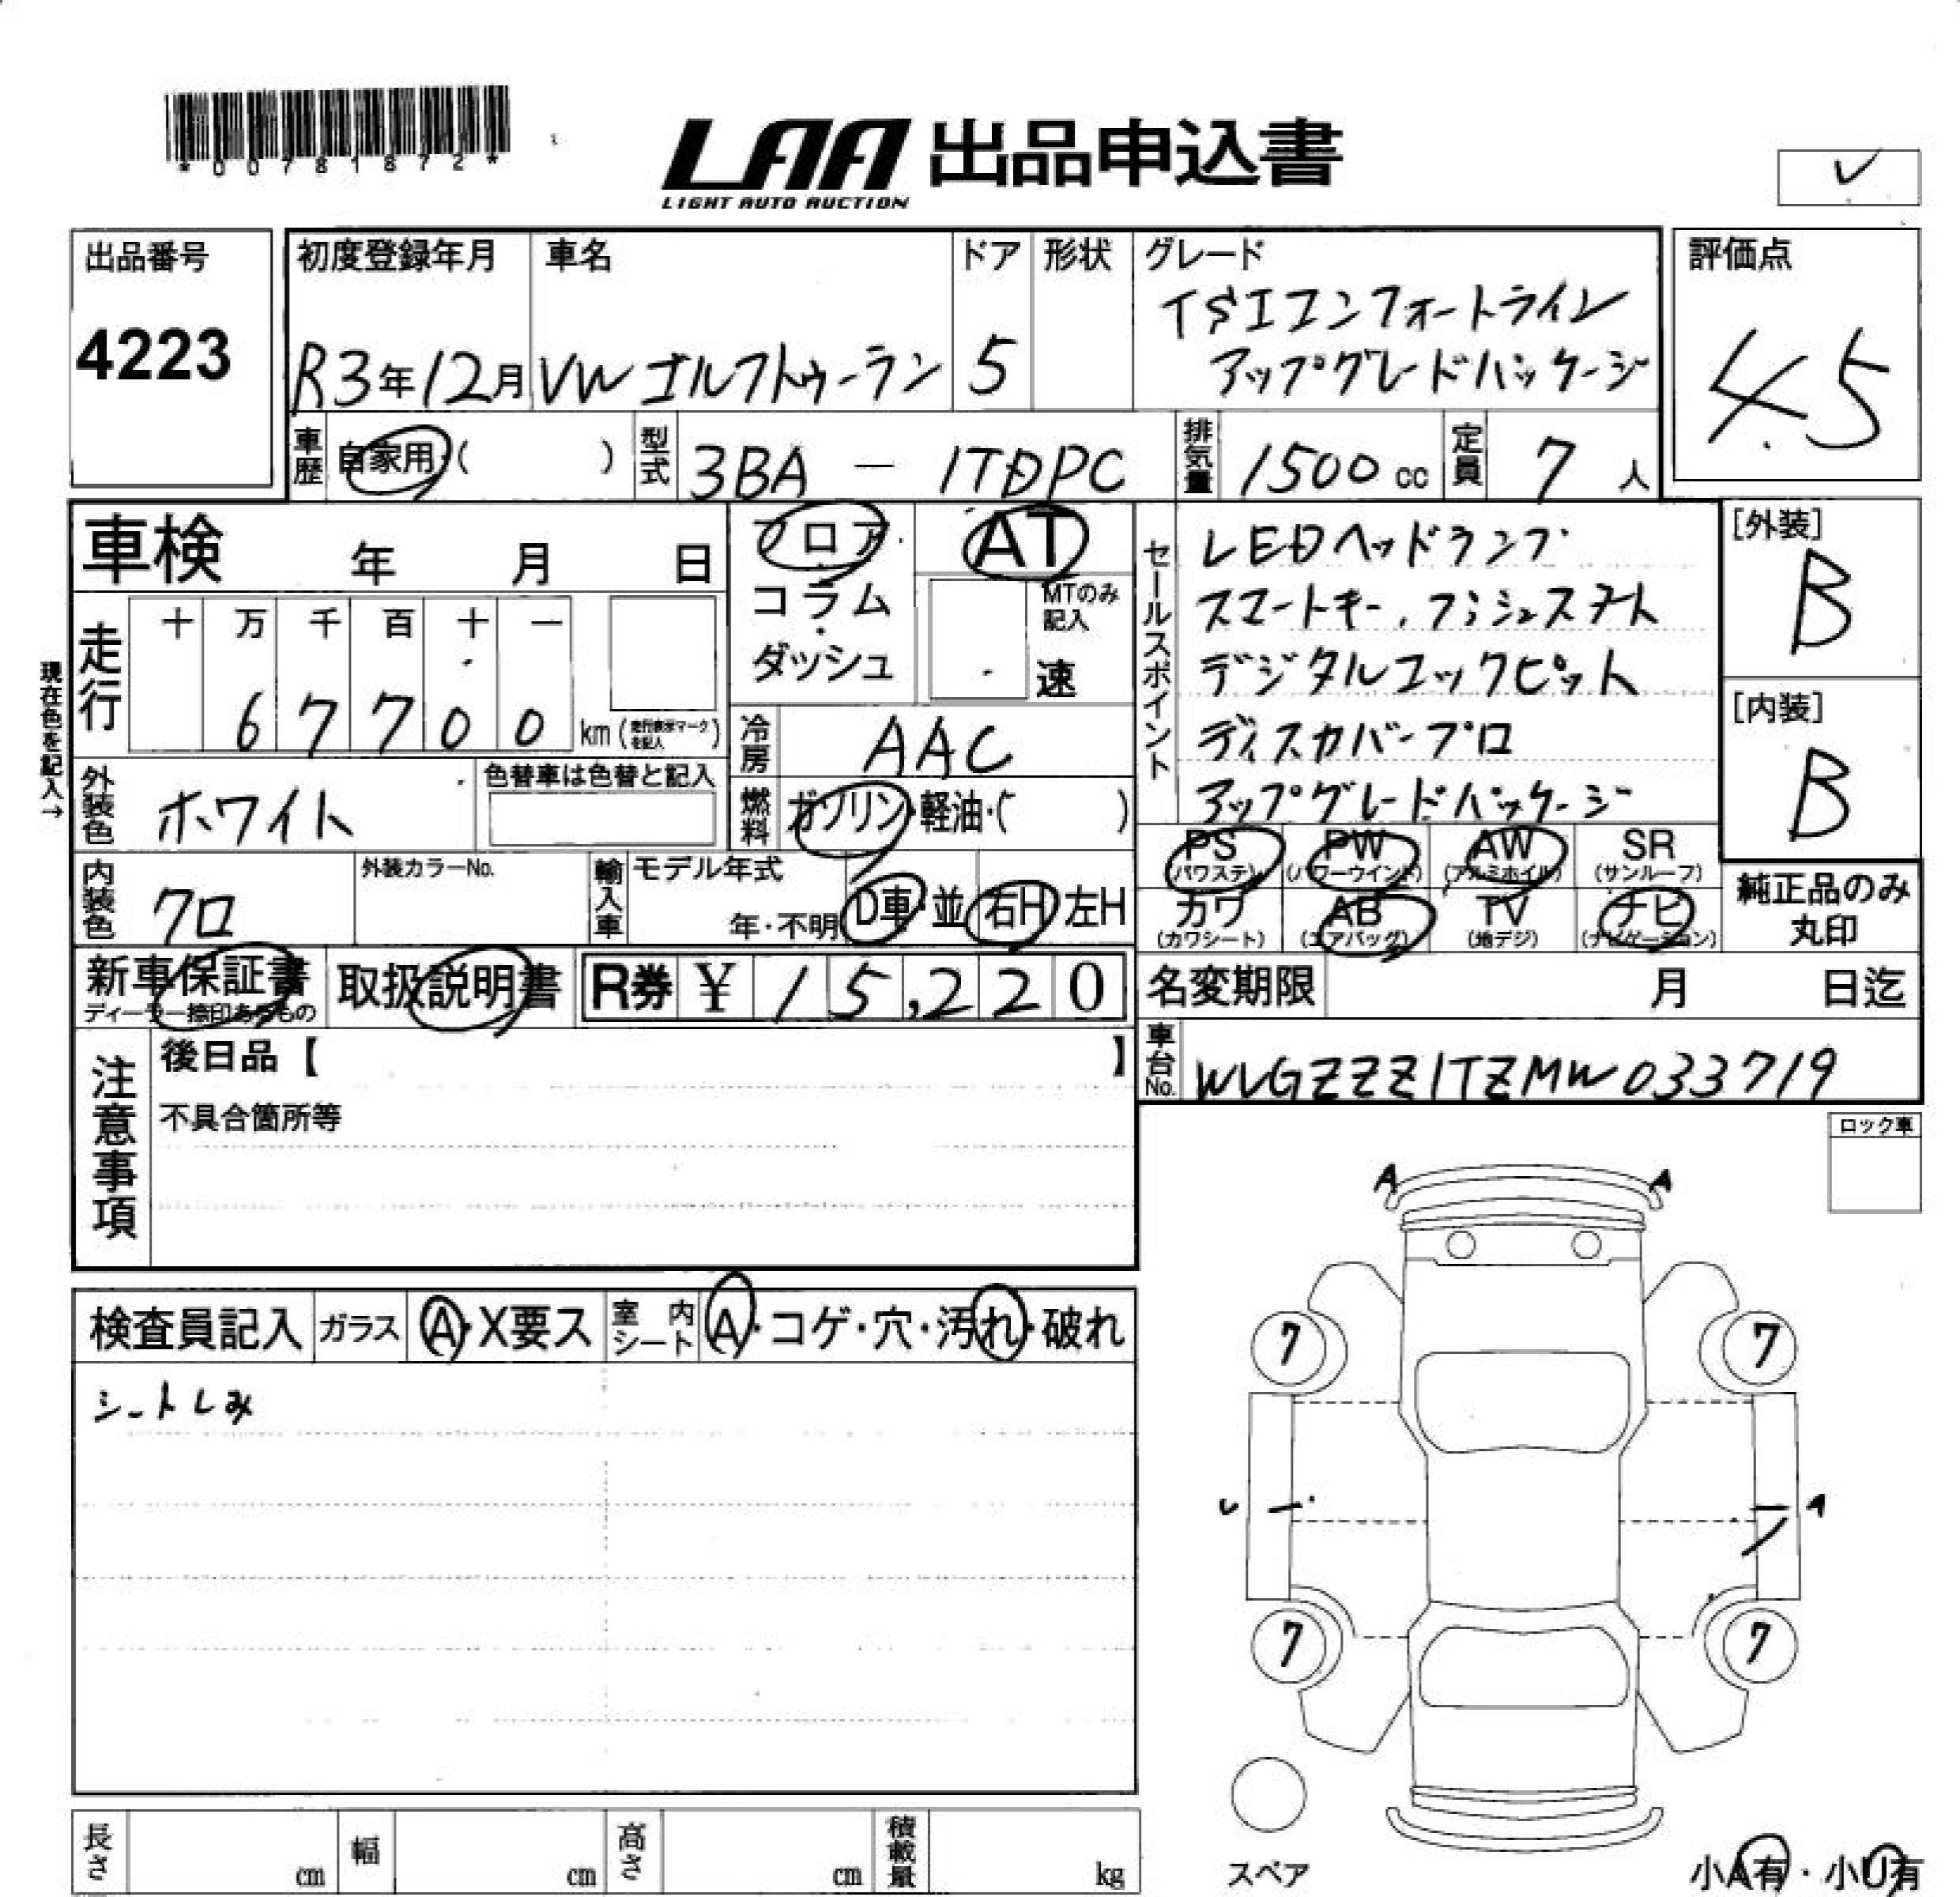 *00781872*
LAA 出品申込書
LIGHT AUTO AUCTION
出品番号
4223
初度登録年月
R3年12月
車名
VW ゴルフトゥーラン
ドア
5
形状
グレード
TSIコンフォートライン
アップグレードパッケージ
評価点
4.5
車歴
自家用・( )
型式
3BA - 1TDPC
排気量
1500 cc
定員
7 人
車検 年 月 日
フロア・
コラム
・
ダッシュ
AT
MTのみ
記入
速
走行
十 万 千 百 十 一
6 7 7 0 0
km(走行表示マークを記入)
現在色を記入→
冷房
AAC
外装色
ホワイト
色替車は色替と記入
燃料
ガソリン・軽油・( )
内装色
クロ
外装カラーNo.
輸入車
モデル年式
年・不明
D車・並
右H 左H
セールスポイント
LEDヘッドランプ
スマートキー、プッシュスタート
デジタルコックピット
ディスカバープロ
アップグレードパッケージ
[外装]
B
[内装]
B
PS
(パワステ)
PW
(パワーウインド)
AW
(アルミホイル)
SR
(サンルーフ)
カワ
(カワシート)
AB
(エアバッグ)
TV
(地デジ)
ナビ
(ナビゲーション)
純正品のみ
丸印
新車保証書
ディーラー捺印あるもの
取扱説明書
R券 ¥ 15,220
名変期限 月 日迄
車台No.
WVGZZZ1TZMW033719
注意事項
後日品【 】
不具合箇所等
ロック車
検査員記入
ガラス
A・X要ス
室内シート
A・コゲ・穴・汚れ・破れ
シートしみ
A A
7 7
A
7 7
スペア
小A有・小U有
長さ cm
幅 cm
高さ cm
積載量 kg